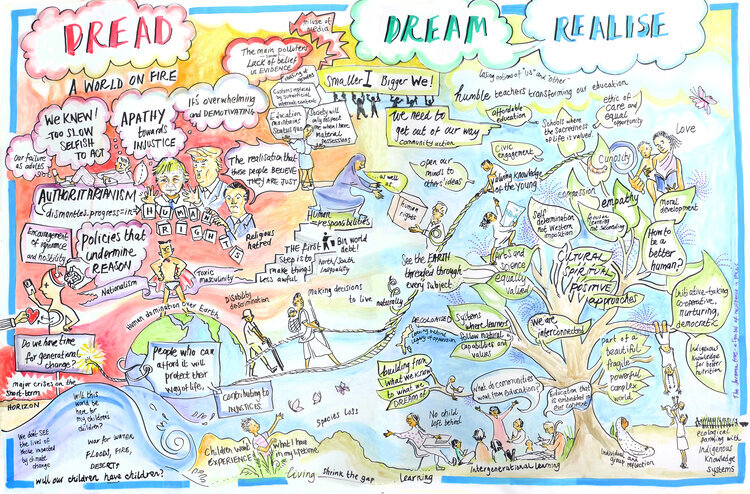 DREAD
DREAM
REALISE
misuse of
MEDIA
The main polluters
Lack of belief
in EVIDENCE
A WORLD ON FIRE
WE KNEW!
TOO SLOW
SELFISH
TO ACT
APATHY
towards
INJUSTICE
It's overwhelming
and DEMOTIVATING
Our failure
as adults
Customs replaced
by superficial,
internet content
Education
maintaining
Status quo
Society will
only respect
me when I have
material
possessions
The realisation that
these people BELIEVE
THEY ARE JUST
AUTHORITARIANISM
dismantles progress
HUMAN
RIGHTS
Religious
hatred
Encouragement
of ignorance
and hostility
Policies that
undermine
REASON
Nationalism
Toxic
masculinity
Human
responsibilities
The first
step is to
make things
less awful.
Bin world
debt!
North/South
inequality
Smaller I Bigger We!
We need to
get out of our way
community action
...as well
as
human
rights
open our
minds to
others' ideas
losing notions of "us" and "other"
humble teachers transforming our education
affordable
education
Civic
engagement
Valuing knowledge
of the young
Schools where
the sacredness
of life is valued
ethic of
care and
equal
opportunity
Curiosity
LOVE
compassion
empathy
moral
development
Self
determination
not Western
imposition
See the EARTH
threaded through
every subject
Arts and
science
equally
valued
CULTURAL
SPIRITUAL
POSITIVE
approaches
How to
be a
better
human?
Initiative-taking
cooperative,
nurturing,
democratic
Woman domination over Earth
Disability
discrimination
Making decisions
to live
naturally
DECOLONIZED
Systems
where learners
follow natural
capabilities and
values
We are
interconnected
part of a
beautiful
fragile
powerful
complex
world
Indigenous
knowledge
for better
nutrition
Do we have time
for generational
change?
people who can
afford it will
protect their
way of life.
contributing to
INJUSTICES.
building from
what we know
to what we
DREAM OF
What do communities
want from education?
Education that
is embedded in
our context
major crises on the
short-term
HORIZON
Will this
world be
here for
my children's
children?
We don't SEE
the lives of
those impacted
by climate
change
WAR FOR WATER
FLOODS, FIRE,
DESERTS
will our children have children?
Children won't
EXPERIENCE
what I have
in my lifetime
Species Loss
No child
left behind
Living
shrink the gap
Learning
Intergenerational learning
Individual,
group and reflection
ecological
farming with
Indigenous
Knowledge
systems